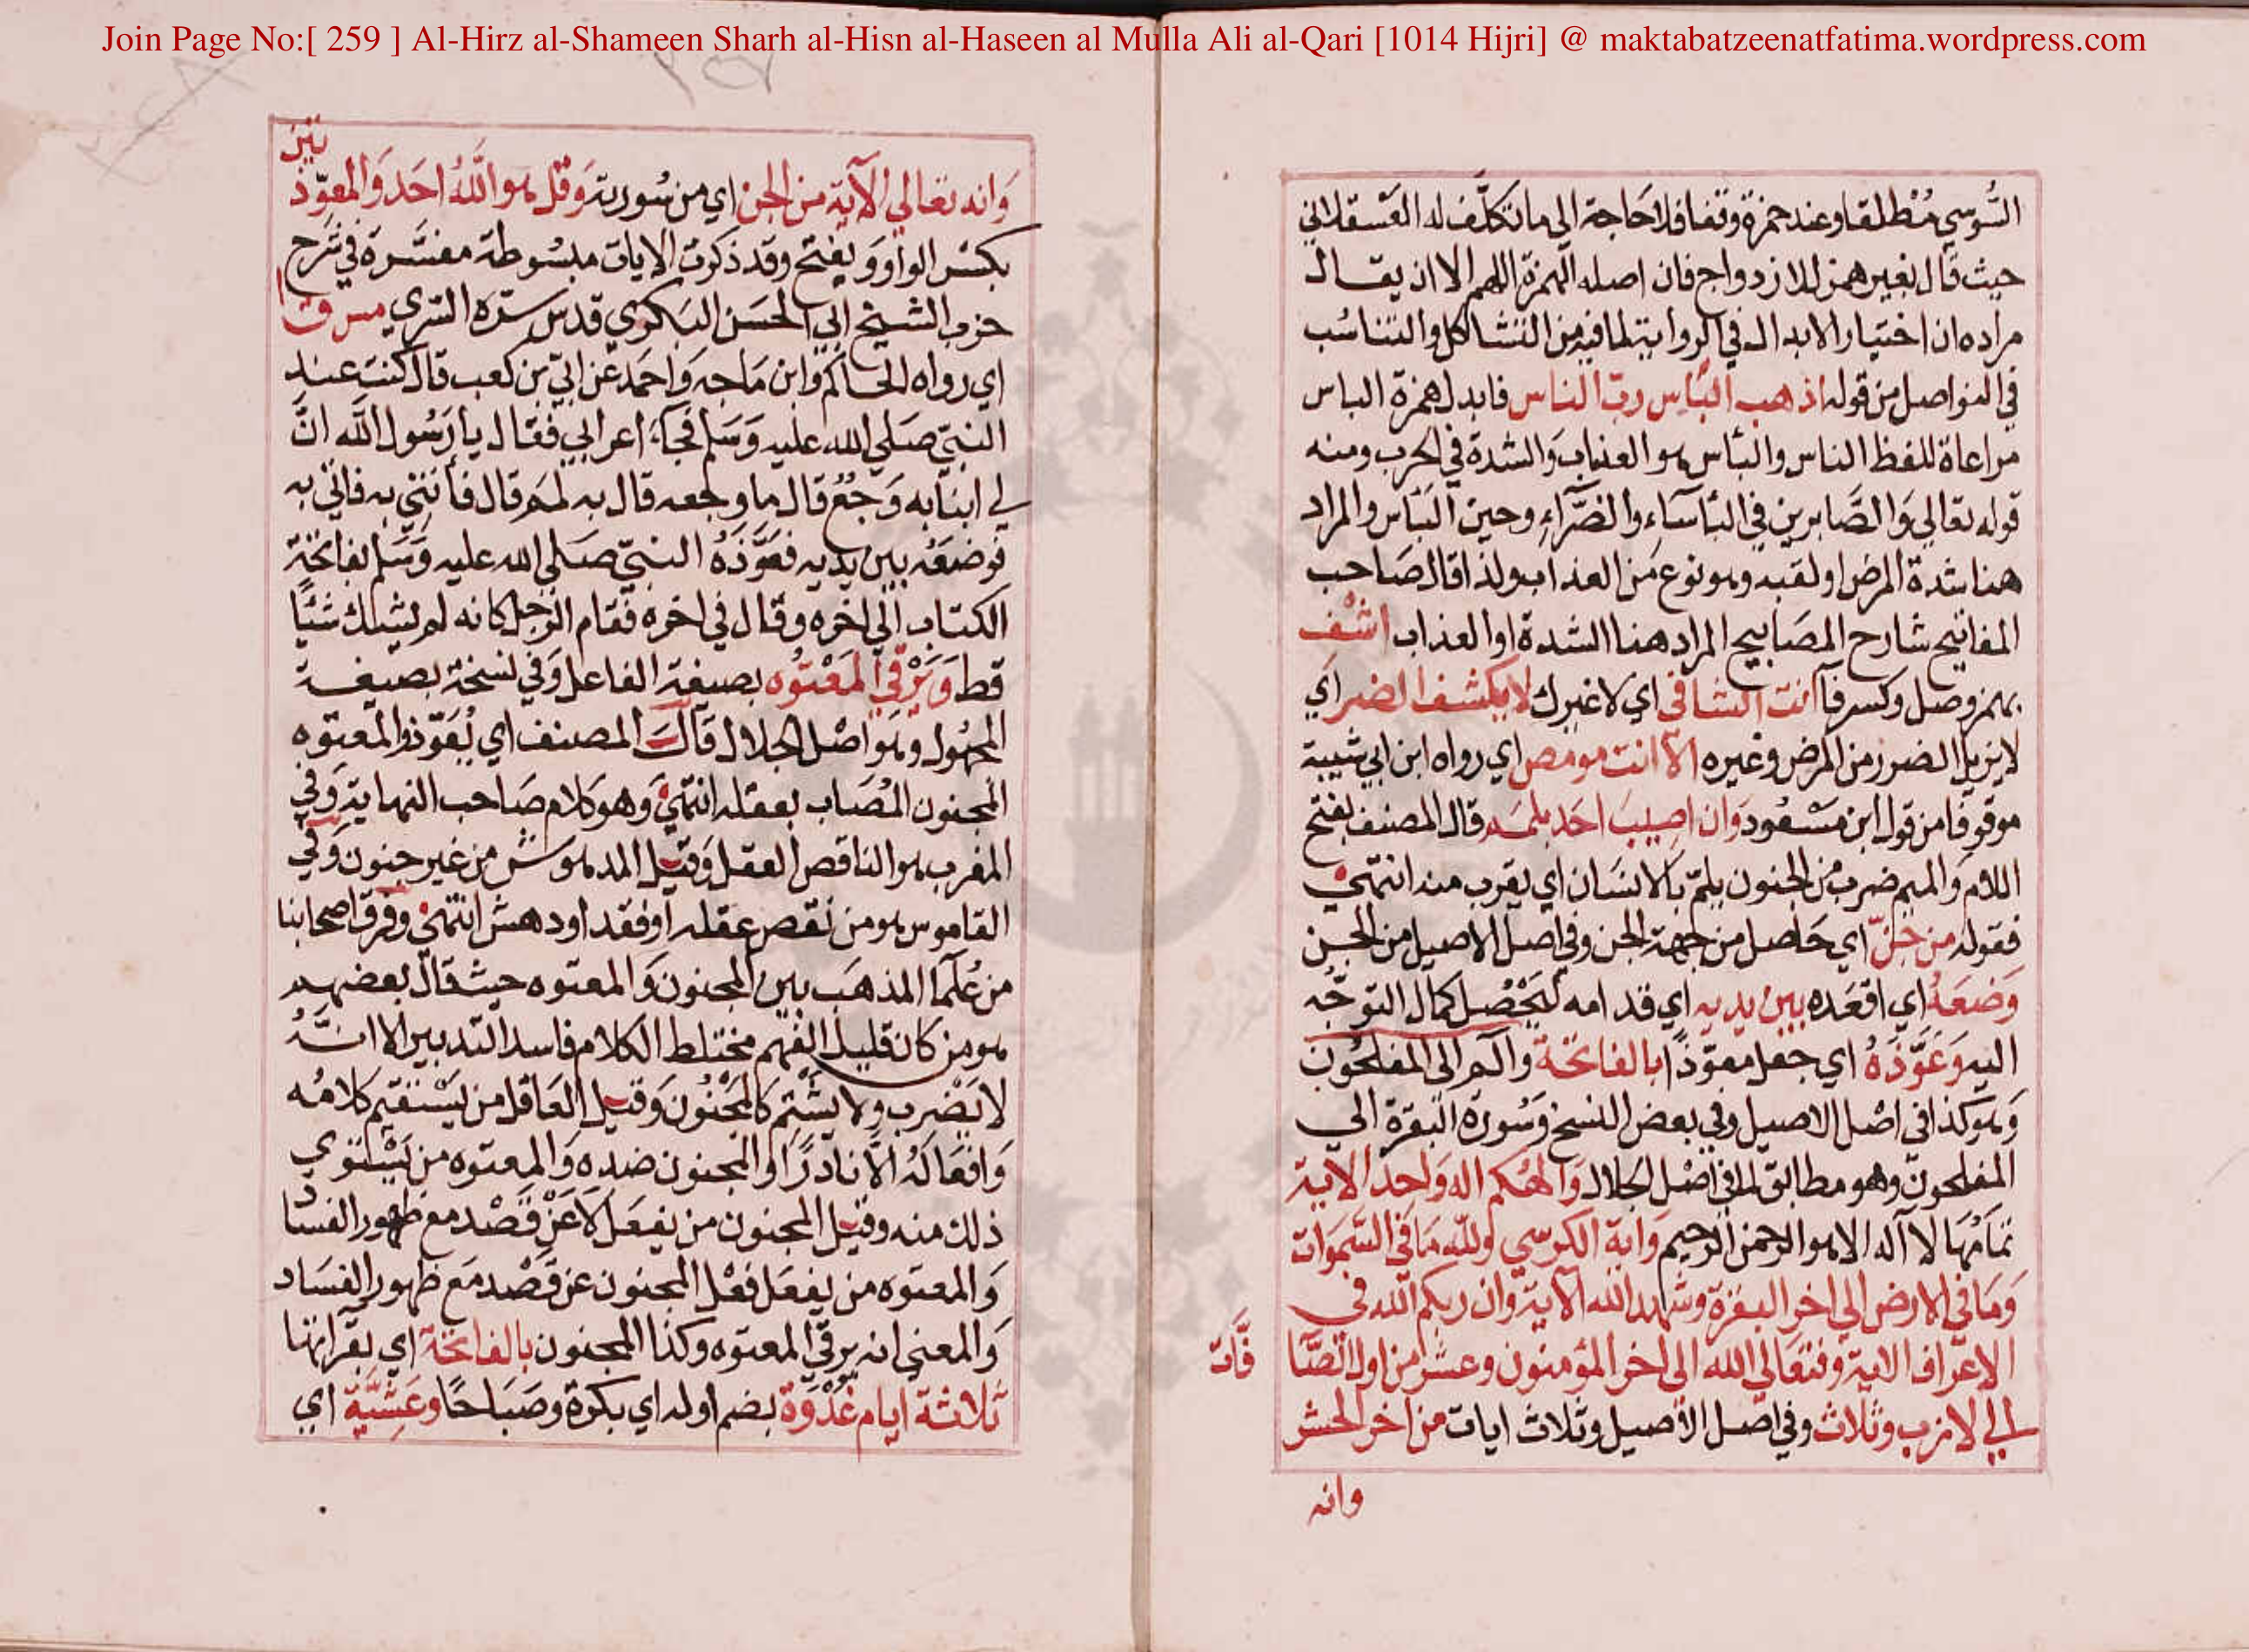 Join Page No:[ 259 ] Al-Hirz al-Shameen Sharh al-Hisn al-Haseen al Mulla Ali al-Qari [1014 Hijri] @ maktabatzeenatfatima.wordpress.com
السُّوسي مُطلقا وعند حمزة وقفا فلا حَاجة الي ما تكلّف له العَسقلاني
حيث قال بغير همز للازدواج فان اصله الهمزة اللهم الا ان يقال
مراده ان اختيار الابدال في الرواية لما فيه من التشاكل والتناسُب
في الفواصل من قوله اذهب البَاس ربّ الناس فابدل همزة الباس
مراعاة للفظ الناس والبأس هو العذاب وَالشدة في الحرب ومنه
قوله تعالي وَالصَّابرين في البأسَاء والضرَّاءِ وحين البَأس والمراد
هنا شدة المرض او لقبه وهو نوع من العذاب ولذا قال صَاحب
المفاتيح شارح المصَابيح المراد هنا الشدة او العذاب اشف
بهمز وصل وكسر فآ انت الشافي اي لا غيرك لا يكشف الضر اي
لا يزيل الضرر من المرض وغيره الّا انت مو مص اي رواه ابن ابي شيبة
موقوفا من قول ابن مسْعُود وَان اصِيبَ احَد بلمَم قال المصنف بفتح
اللام والميم ضرب من الجنون يلمّ بالانسَان اي يقرب منه انتهي
فقوله من جنّ اي حَاصل من جهة الجن وفي اصل الاصيل من الجن
وَضعَهُ اي اقعَده بين يديه اي قدامه ليَحْصُل كمال التوجّه
اليه وَعَوَّذَهُ اي جعل معوّذًا بالفاتحة والم الي المفلحُون
وَهو كذا في اصْل الاصيل وفي بعض النسخ وَسُورة البَقرة الي
المفلحون وهو مطابق لما في اصْل الجلال وَالهُكم اله وَاحد الاية
تمَامُهَا لا اله الا هو الرحمن الرحيم وَاية الكرسي ولله مَا في السَّموَات
وَمَا في الارض الي اخر البقرة وشهد الله الاية وان ربكم الله في
الاعراف الاية وفتعَالي الله الي اخر المؤمنون وعشر من اول الصَّا
فَّات
لي لازب وثلاث وفي اصل الاصيل وثلاث ايات من اخر الحشر
وانه
تين
وَانه تعَالي الآية من الجن اي من سُورية وَقل هو اللهُ احَد وَالمعوّذ
بكسْر الواو وَيفتح وقد ذكرت الايات مبسُوطة مفسَّرة في شرح
حزب الشيخ ابي الحسَن البَكري قدس سرّه السّري مس ق ا
اي رواه الحاكم وابن مَاجه وَاحمَد عن ابيّ بن كعب قال كنت عند
النبيّ صَلي الله عليه وَسَلم فجآء اعرابي فقال يا رَسُول الله انَّ
لي ابنا به وَجعٌ قال ما وجعه قال به لمَم قال فأتني به فاتي به
فوضعَهُ بين يديه فعَوَّذَهُ النبيّ صَلي الله عليه وَسَلم بفاتحة
الكتاب الي اخره وقال في اخره فقام الرّجل كانه لم يشك شيًا
قط وَيَرْقي المَعْتوه بصيغة الفاعل وَفي نسخة بصيغة
المجهُول وهو اصْل الجلال قال المصنف اي يُعَوّذ والمعتوه
المجنون المُصَاب بعقله انتهي وَهو كلام صَاحب النهاية وَفي
المغرب هو الناقص العقل وَقيل المدهوش من غير جنون وَفي
القاموس هو من نقص عقله او فقد او دهش انتهي وفرق اصحابنا
من عُلمآ المذهَب بين المجنون وَالمعتوه حيث قال بعضهم
هو من كان قليل الفهم مختلط الكلام فاسد التدبير الا انَّهُ
لا يَضرب ولا يشتم كالمجْنُون وَقيل العَاقل من يَسْتقيم كلامُه
وَافعَالهُ الَّا نادرًا والمجنون ضده وَالمعتوه من يَسْتوي
ذلك منه وقيل المجنون من يفعَل لا عَنْ قصْد مع ظهور الفسَا
د
وَالمعتوه من يفعَل فعْل المجنون عن قصْد مَع ظهور الفسَاد
وَالمعني انه يرقي المعتوه وكذا المجنون بالفاتحة اي بقرآتها
ثلاثة ايام غُدْوَةً بضم اوله اي بكرة وصَبَاحًا وعَشيَّة اي